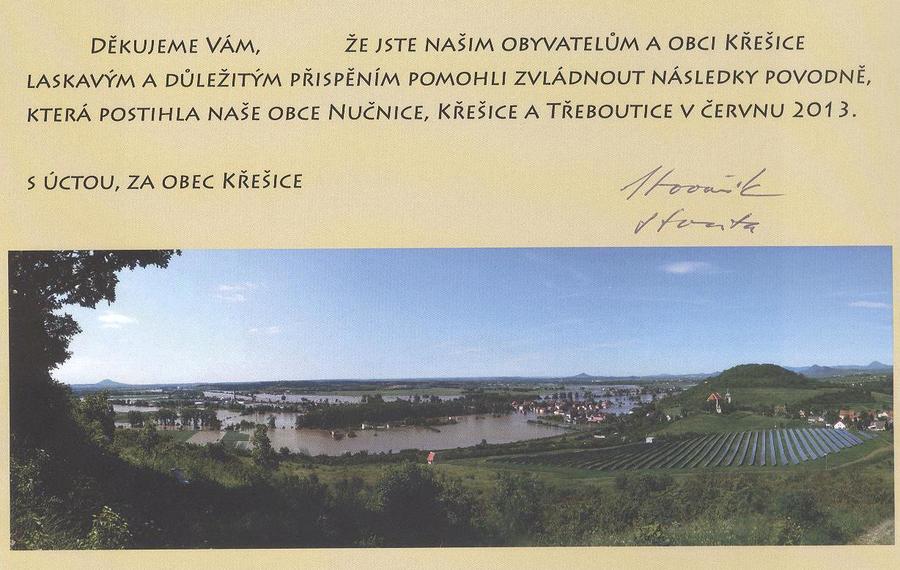 Děkujeme Vám, že jste našim obyvatelům a obci Křešice
laskavým a důležitým přispěním pomohli zvládnout následky povodně,
která postihla naše obce Nučnice, Křešice a Třeboutice v červnu 2013.
s úctou, za obec Křešice